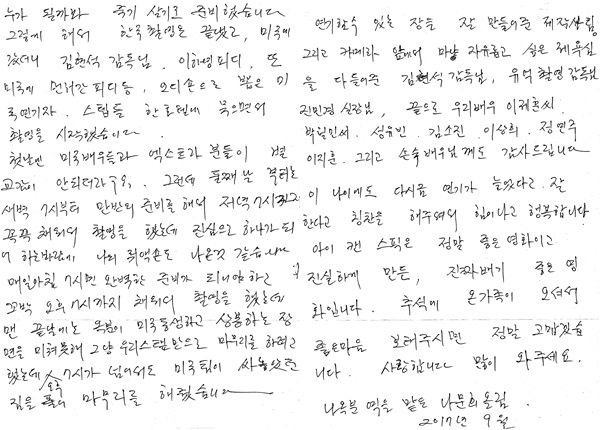 누가 될까봐 죽기 살기로 준비했습니다
그렇게 해서 한국촬영을 끝냈고, 미국에
갔더니 김현석 감독님, 이하영 피디, 또
미국에 피디등, 오디션으로 뽑은 미
국연기자, 스탭들 한 호텔에 묵으면서
촬영을 시작했습니다
첫날엔 미국배우들과 엑스트라 분들이 별
교감이 안되더라구요. 그런데 둘째 날 부터는
새벽 7시부터 만반의 준비를 해서 저녁 7시까지
꼭꼭 채워서 촬영을 했는데 진심으로 하나가 되
어 하는바람에 나의 취약한 나온것 같습니다
매일아침 7시면 완벽한 준비가 되니까 하고
꼬박 오후 7시까지 채워서 촬영을 했는데
맨 끝날에는 옥분이 미국동생하고 상봉하는 장
면을 미쳐못해 그냥 우리스탭만으로 마무리를 하려고
했는데 오후 7시가 넘어서도 미국팀이 싸놓았던
짐을 풀러 마무리를 해줬습니다
연기할수 있는 장을 잘 만들어준 제작사팀
그리고 카메라 앞에서 마냥 자유롭고 싶은 제 무질
을 다듬어준 김현석 감독님, 유억 촬영 감독님
진민경 실장님, 끝으로 우리배우 이제훈씨
박철민씨. 성유빈. 김소진. 이상희. 정연주
이지훈. 그리고 손숙 배우님께도 감사드립니다
이 나이에도 다시금 연기가 늘었다고. 잘
한다고 칭찬을 해주셔서 힘이나고 행복합니다
아이 캔 스픽은 정말 좋은 영화이고
진실하게 만든, 진짜배기 좋은 영
화입니다. 추석에 온가족이 오셔서
좋은마음 보태주시면 정말 고맙겠습
니다. 사랑합니다 많이 와주세요.
나옥분 역을 맡은 나문희 올림.
2017년 9월